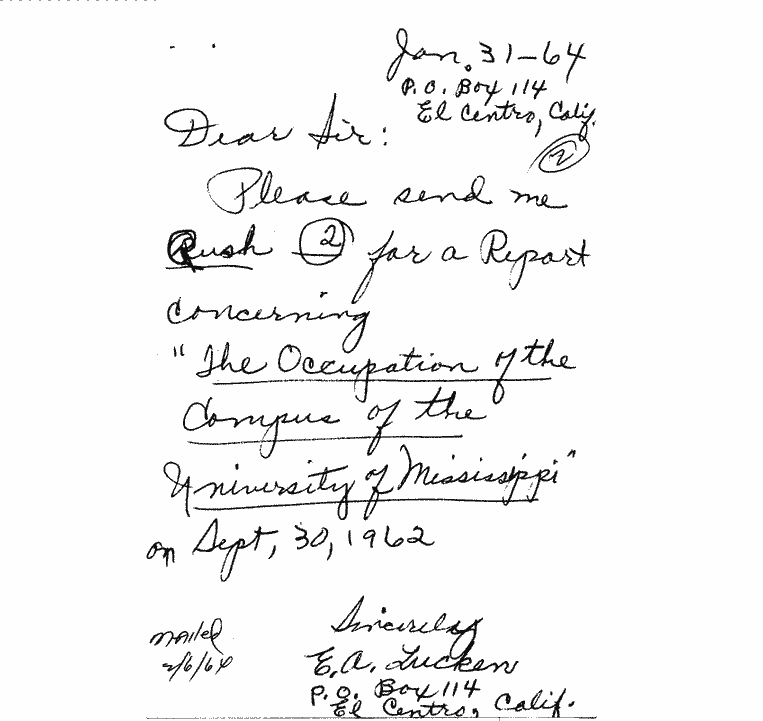 Jan. 31-64
P.O. Box 114
El Centro, Calif.
Dear Sir:
2
Please send me
Rush 2 for a Report
concerning
"The Occupation of the
Campus of the
University of Mississippi"
on Sept, 30, 1962
Sincerely
mailed
E.A. Lucken
2/6/64
P.O. Box 114
El Centro, Calif.